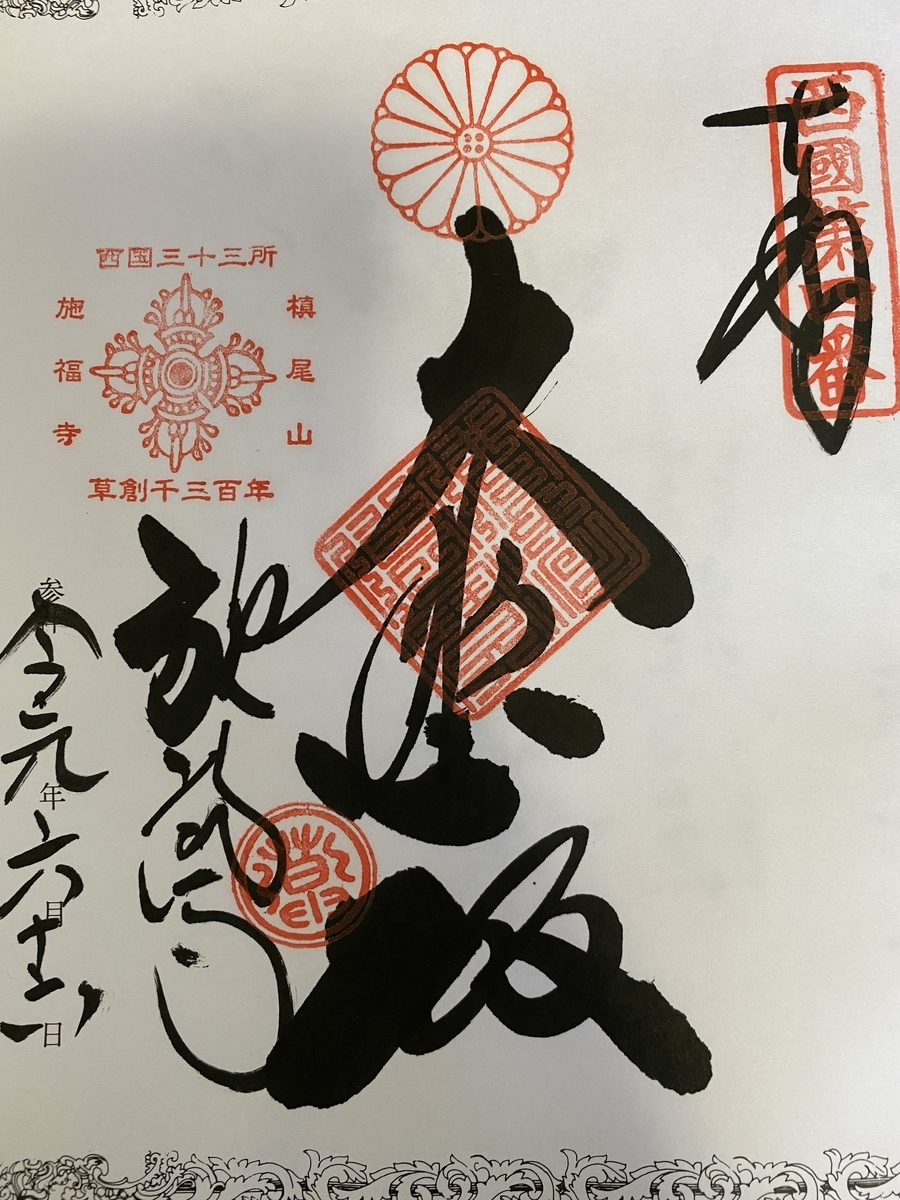 奉拝
西國第四番
大悲殿
西国三十三所
槙尾山
施福寺
草創千三百年
施福寺
令元年六月十六日